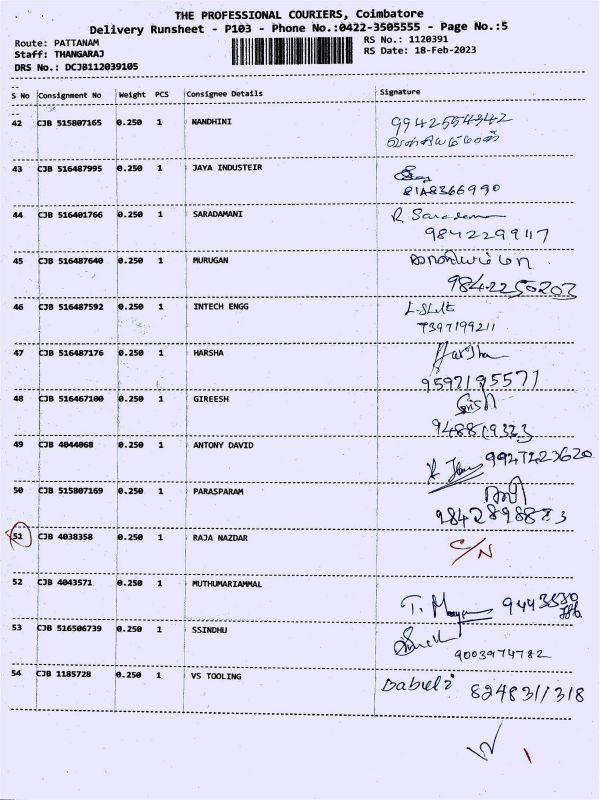 THE PROFESSIONAL COURIERS, Coimbatore
Delivery Runsheet - P103 - Phone No.:0422-3505555 - Page No.:5
Route: PATTANAM
RS No.: 1120391
Staff: THANGARAJ
RS Date: 18-Feb-2023
DRS No.: DCJB112039105
S No Consignment No Weight PCS Consignee Details Signature
42 CJB 515807165 0.250 1 NANDHINI 9942554342
43 CJB 516487995 0.250 1 JAYA INDUSTEIR
8148366990
44 CJB 516401766 0.250 1 SARADAMANI R Saradamani
9842299117
45 CJB 516487640 0.250 1 MURUGAN
9842250203
46 CJB 516487592 0.250 1 INTECH ENGG
7397199211
47 CJB 516487176 0.250 1 HARSHA Harsha
9597195577
48 CJB 516467100 0.250 1 GIREESH
9488819323
49 CJB 4044068 0.250 1 ANTONY DAVID 9947223620
50 CJB 515807169 0.250 1 PARASPARAM
9842898873
51 CJB 4038358 0.250 1 RAJA NAZDAR C/N
52 CJB 4043571 0.250 1 MUTHUMARIAMMAL
53 CJB 516506739 0.250 1 SSINDHU
9003974782
54 CJB 1185728 0.250 1 VS TOOLING Babuli 8248311318